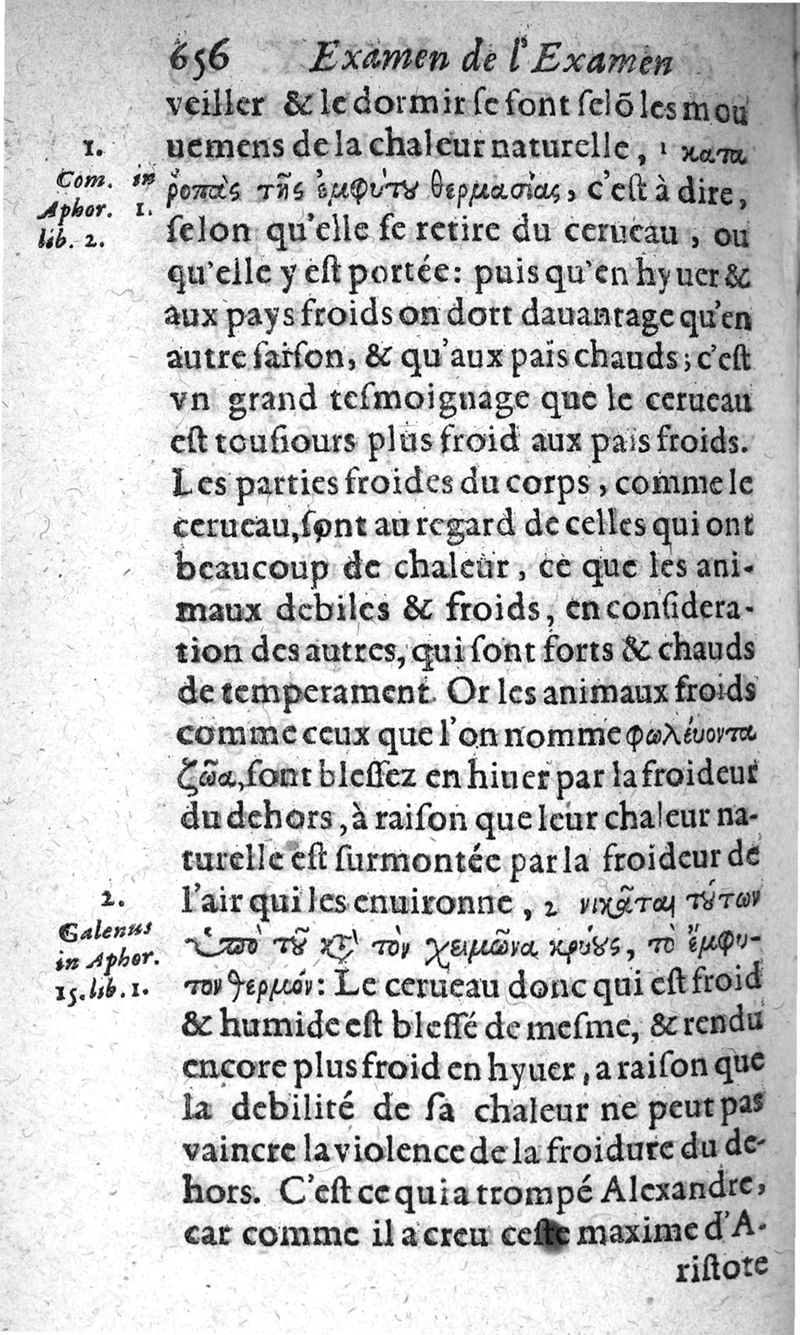 656 Examen de l'Examen
veiller & le dormir se font selõ les mou
1.
uemens de la chaleur naturelle, 1 κατα
Com. in
ῥοπὰς τῆς ἐμφύτου θερμασίας, c'est à dire,
Aphor. 1.
lib. 2.
selon qu'elle se retire du cerueau, ou
qu'elle y est portée: puis qu'en hyuer &
aux pays froids on dort dauantage qu'en
autre saison, & qu'aux païs chauds; c'est
vn grand tesmoignage que le cerueau
est tousiours plus froid aux païs froids.
Les parties froides du corps, comme le
cerueau, sont au regard de celles qui ont
beaucoup de chaleur, ce que les ani-
maux debiles & froids, en considera-
tion des autres, qui sont forts & chauds
de temperament. Or les animaux froids
comme ceux que l'on nomme φωλέυοντα
ζῶα, sont blessez en hiuer par la froideur
du dehors, à raison que leur chaleur na-
turelle est surmontée par la froideur de
2.
l'air qui les enuironne, 2 νικᾶται τούτων
Galenus
ὑπὸ τοῦ κτ' τὸν χειμῶνα κρύους, τὸ ἔμφυ-
in Aphor.
15. lib. 1.
τον θερμόν: Le cerueau donc qui est froid
& humide est blessé de mesme, & rendu
encore plus froid en hyuer, a raison que
la debilité de sa chaleur ne peut pas
vaincre la violence de la froidure du de-
hors. C'est ce qui a trompé Alexandre,
car comme il a creu ceste maxime d'A-
ristote